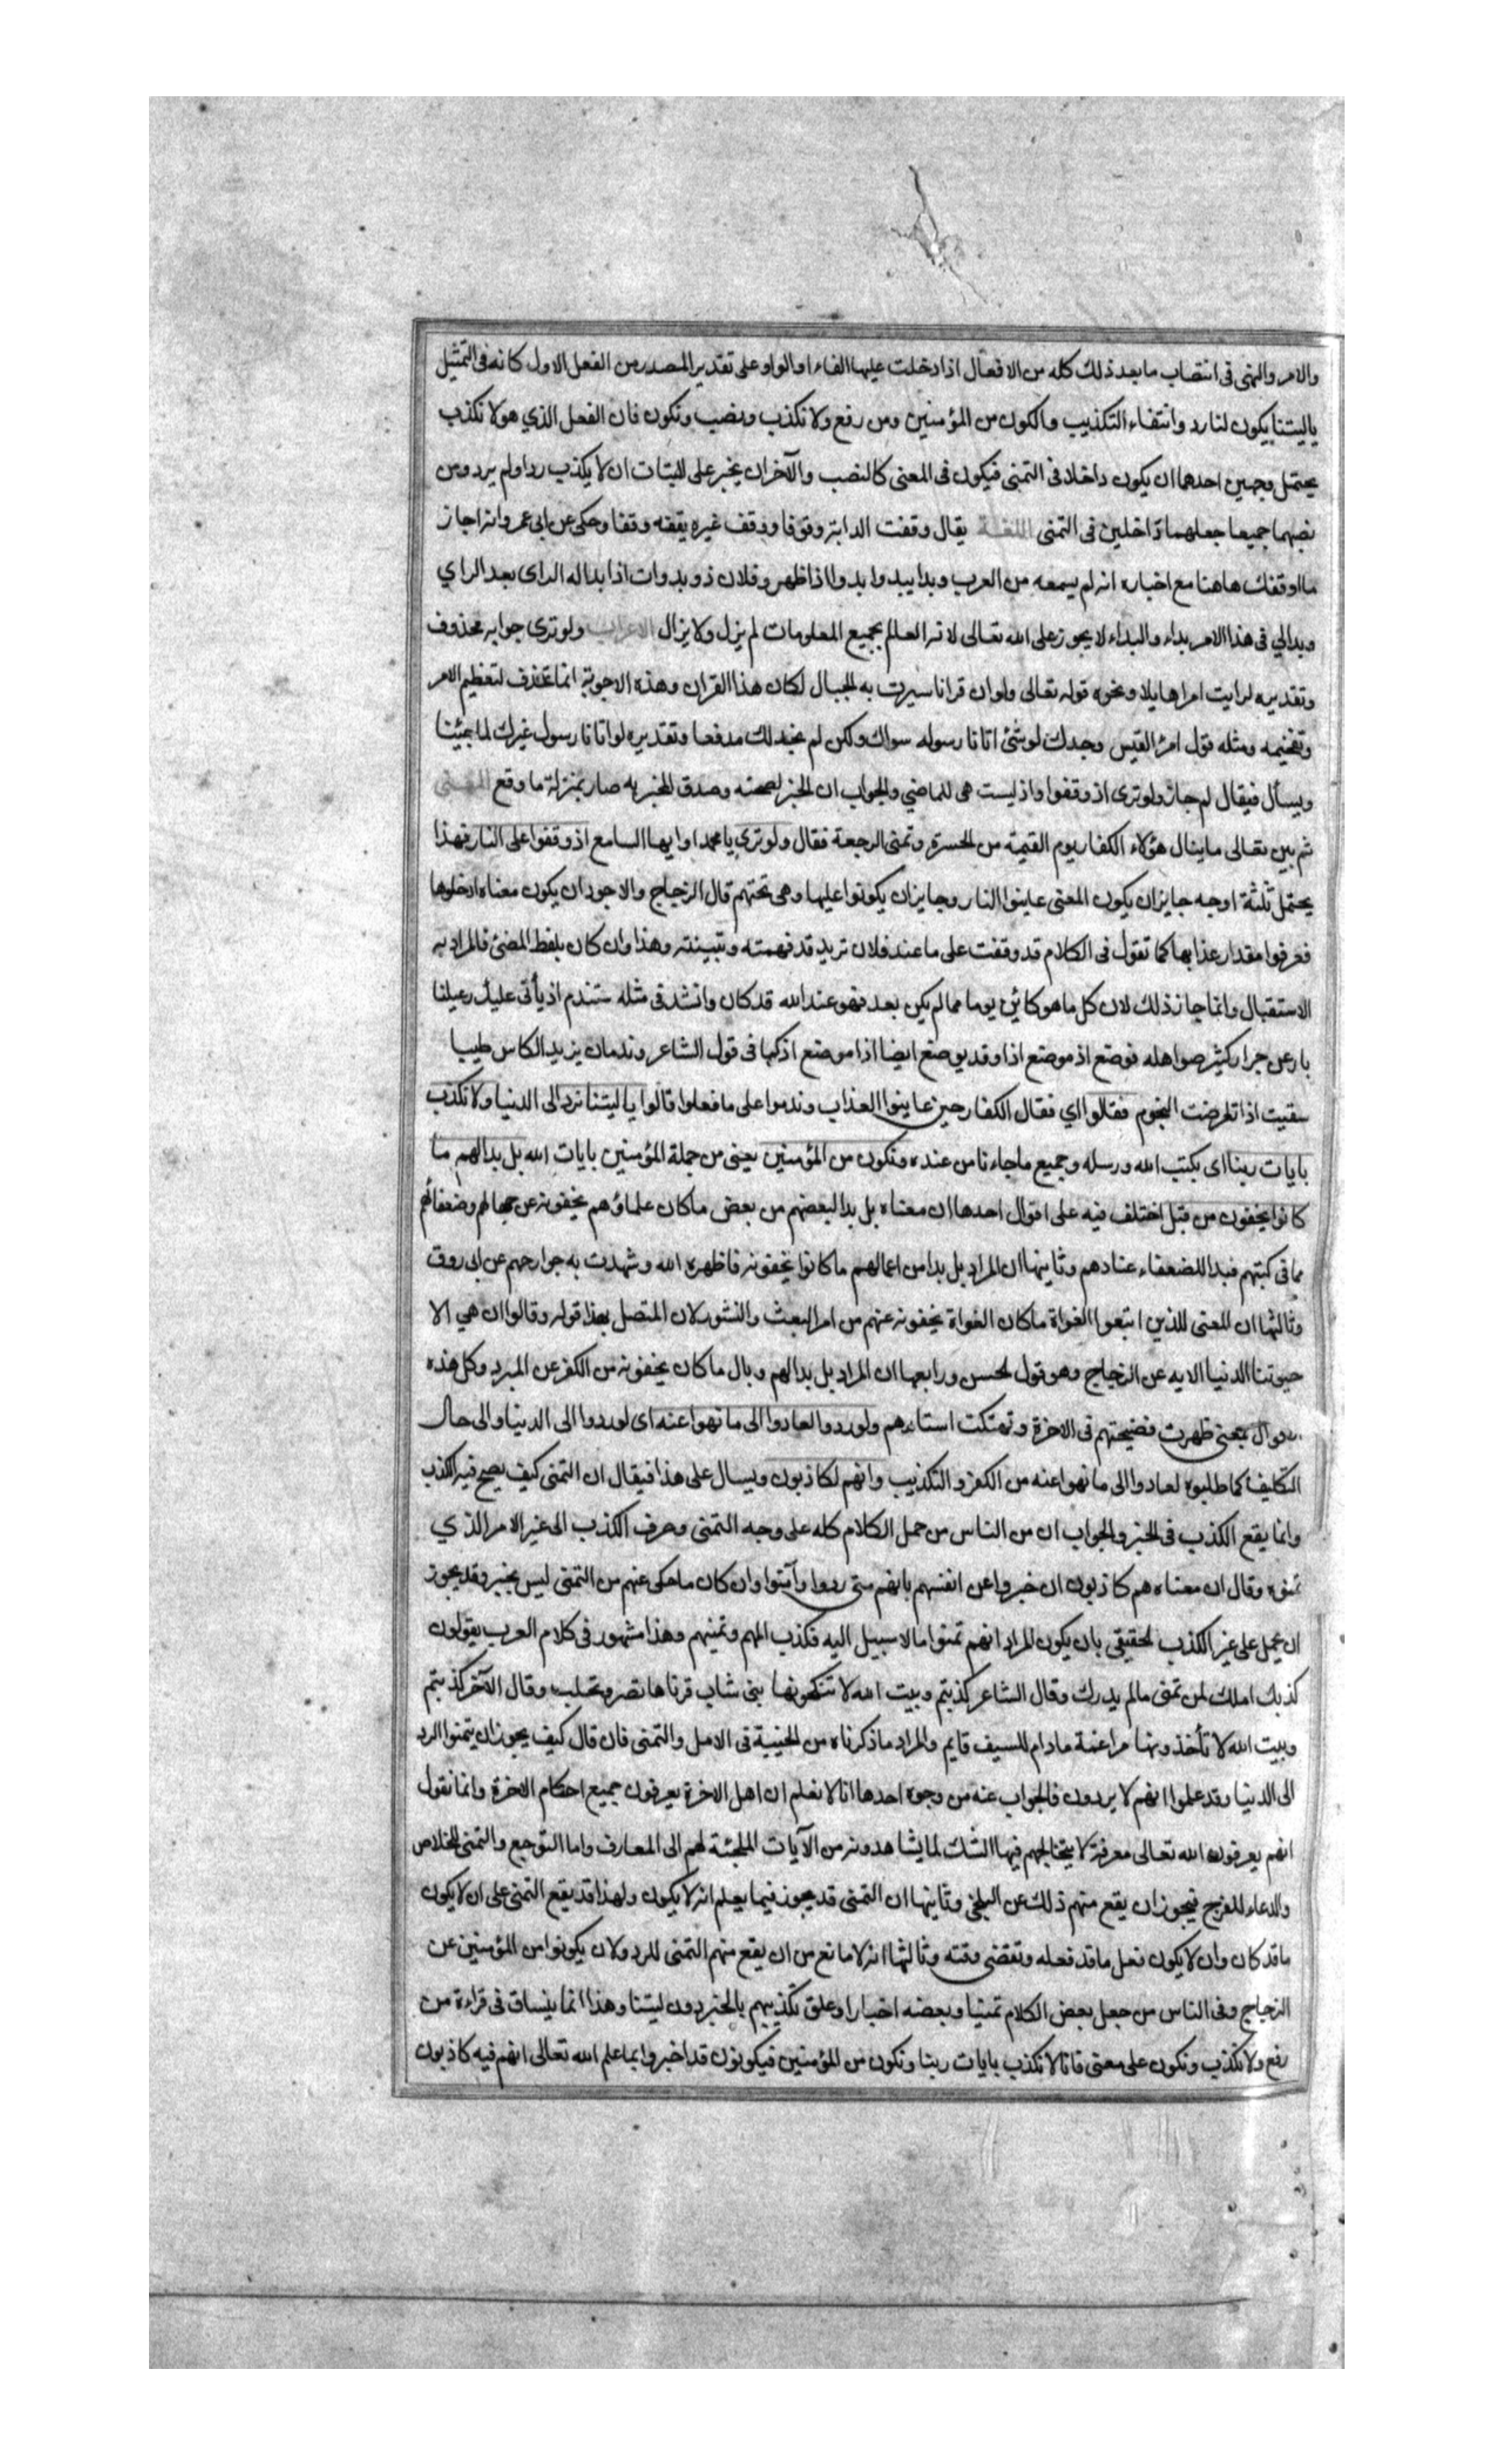 والامر والنهى فى انتصاب ما بعد ذلك كله من الافعال اذا دخلت عليها الفاء او الواو على تقدير المصدر من الفعل الاول كانه فى التمثيل
ياليتنا يكون لنا رد وانتفاء التكذيب والكون من المؤمنين ومن رفع ولا نكذب ونصب ونكون فان الفعل الذي هو لا نكذب
يحتمل وجهين احدهما ان يكون داخلا فى التمنى فيكون فى المعنى كالنصب والآخر ان يخبر على الثبات ان لا يكذب ردا ولم يرد ومن
نصبهما جميعا جعلهما داخلين فى التمنى اللغة يقال وقفت الدابة وقوفا ووقف غيره يقفه وقفا وحكى عن ابى عمرو انه اجاز
ما اوقفك هاهنا مع اخباره انه لم يسمعه من العرب وبدا يبدوا بدوا اذا ظهر وفلان ذو بدوات اذا بدا له الراى بعد الراي
وبدالي فى هذا الامر بداء والبداء لا يجوز على الله تعالى لانه العالم بجميع المعلومات لم يزل ولا يزال الاعراب ولو ترى جوابه محذوف
وتقديره لرايت امرا هايلا ونحوه قوله تعالى ولو ان قرانا سيرت به الجبال لكان هذا القران وهذه الاجوبة انما تحذف لتعظيم الامر
وتفخيمه ومثله قول امرئ القيس وجدك لو شئ اتانا رسوله سواك ولكن لم نجد لك مدفعا وتقديره لو اتانا رسول غيرك لما جئنا
ويسأل فيقال لم جاز ولو ترى اذ وقفوا واذ ليست هى للماضي والجواب ان الخبر لصحته وصدق المخبر به صار بمنزلة ما وقع المعنى
ثم بين تعالى ما ينال هؤلاء الكفار يوم القيمة من الحسرة وتمنى الرجعة فقال ولو ترى يا محمد او ايها السامع اذ وقفوا على النار فهذا
يحتمل ثلثة اوجه جايز ان يكون المعنى عاينوا النار وجايز ان يكونوا عليها وهى تحتهم قال الزجاج والاجود ان يكون معناه ادخلوها
فعرفوا مقدار عذابها كما تقول فى الكلام قد وقفت على ما عند فلان تريد قد فهمته وتبينته وهذا وان كان بلفظ المضى فالمراد به
الاستقبال وانما جاز ذلك لان كل ما هو كائن يوما مما لم يكن بعد فهو عند الله قد كان وانشد فى مثله ستندم اذ يأتى عليك رعيلنا
بارعن جرار كثير صواهله فوضع اذ موضع اذا وقد يوضع ايضا اذا موضع اذ كما فى قول الشاعر وندمان يزيد الكاس طيبا
سقيت اذا تعرضت النجوم فقالوا اي فقال الكفار حين عاينوا العذاب وندموا على ما فعلوا قالوا يا ليتنا نرد الى الدنيا ولا نكذب
بايات ربنا اى بكتب الله ورسله وجميع ما جاءنا من عنده ونكون من المؤمنين يعنى من جملة المؤمنين بايات الله بل بدا لهم ما
كانوا يخفون من قبل اختلف فيه على اقوال احدها ان معناه بل بدا لبعضهم من بعض ما كان علماؤهم يخفونه عن جهالهم وضعفائهم
مما فى كبتهم فبدا للضعفاء عنادهم وثانيها ان المراد بل بدا من اعمالهم ما كانوا يخفونه فاظهره الله وشهدت به جوارحهم عن ابى روق
وثالثها ان المعنى للذين اتبعوا الغواة ما كان الغواة يخفونه عنهم من امر البعث والنشور لان المتصل بهذا قوله وقالوا ان هي الا
حيوتنا الدنيا الايه عن الزجاج وهو قول الحسن ورابعها ان المراد بل بدا لهم وبال ما كان يخفونه من الكفر عن المبرد وكل هذه
الاقوال بمعنى ظهرت فضيحتهم فى الاخرة وتهتكت استارهم ولو ردوا لعادوا الى ما نهوا عنه اى لو ردوا الى الدنيا والى حال
التكليف كما طلبوه لعادوا الى ما نهوا عنه من الكفر والتكذيب وانهم لكاذبون ويسال على هذا فيقال ان التمنى كيف يصح فيه الكذب
وانما يقع الكذب فى الخبر والجواب ان من الناس من حمل الكلام كله على وجه التمنى وصرف الكذب الى غير الامر الذي
تمنوه وقال ان معناه هم كاذبون ان خبروا عن انفسهم بانهم متى ردوا وآمنوا وان كان ما حكى عنهم من التمنى ليس بخبر وقد يجوز
ان يحمل على غير الكذب الحقيقي بان يكون المراد انهم تمنوا ما لا سبيل اليه فكذب املهم وتمنيهم وهذا مشهور فى كلام العرب يقولون
كذبك املك لمن تمنى مالم يدرك وقال الشاعر كذبتم وبيت الله لا تنكحونها بنى شاب قرناها تصر وتحلب وقال الآخر كذبتم
وبيت الله لا تأخذونها مراغمة مادام للسيف قايم والمراد ما ذكرناه من الخيبة فى الامل والتمنى فان قال كيف يجوز ان يتمنوا الرد
الى الدنيا وقد علموا انهم لا يردون فالجواب عنه من وجوه احدها انا لا نعلم ان اهل الاخرة يعرفون جميع احكام الاخرة وانما نقول
انهم يعرفون الله تعالى معرفة لا يتخالجهم فيها الشك لما يشاهدونه من الآيات الملجئة لهم الى المعارف واما التوجع والتمنى للخلاص
والدعاء للفرج فيجوز ان يقع منهم ذلك عن البلخى وثانيها ان التمنى قد يجوز فيما يعلم انه لا يكون ولهذا قد يقع التمنى على ان لا يكون
ما قد كان وان لا يكون فعل ما قد فعله وتقضى وقته وثالثها انه لا مانع من ان يقع منهم التمنى للرد ولان يكونوا من المؤمنين عن
الزجاج وفى الناس من جعل بعض الكلام تمنيا وبعضه اخبارا وعلق تكذيبهم بالخبر دون ليتنا وهذا انما ينساق فى قراءة من
رفع ولا نكذب ونكون على معنى فانا لا نكذب بايات ربنا ونكون من المؤمنين فيكونون قد اخبروا بما علم الله تعالى انهم فيه كاذبون